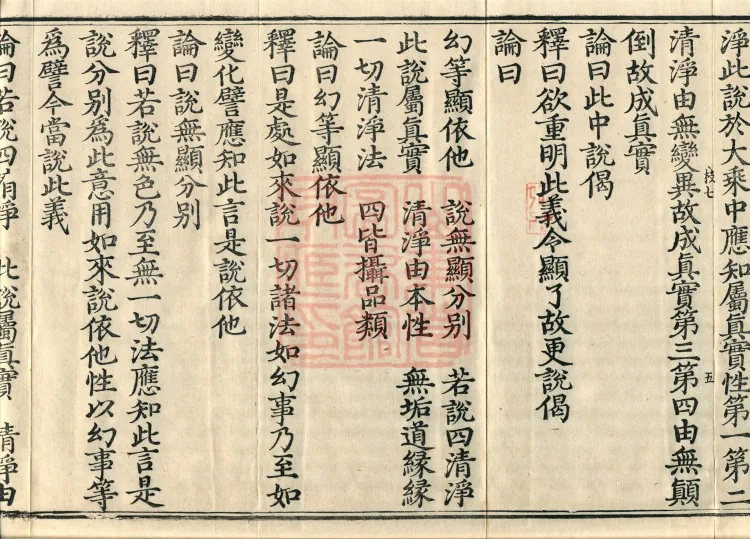 淨此說於大乘中應知屬真實性第一第二
清淨由無變異故成真實第三第四由無顛
倒故成真實
論曰此中說偈
釋曰欲重明此義令顯了故更說偈
論曰
幻等顯依他　說無顯分別　若說四清淨
此說屬真實　清淨由本性　無垢道緣緣
一切清淨法　四皆攝品類
論曰幻等顯依他
釋曰是處如來說一切諸法如幻事乃至如
變化譬應知此言是說依他
論曰說無顯分別
釋曰若說無色乃至無一切法應知此言是
說分別為此意用如來說依他性以幻事等
為譬今當說此義
論曰若說四清淨　此說屬真實　清淨由